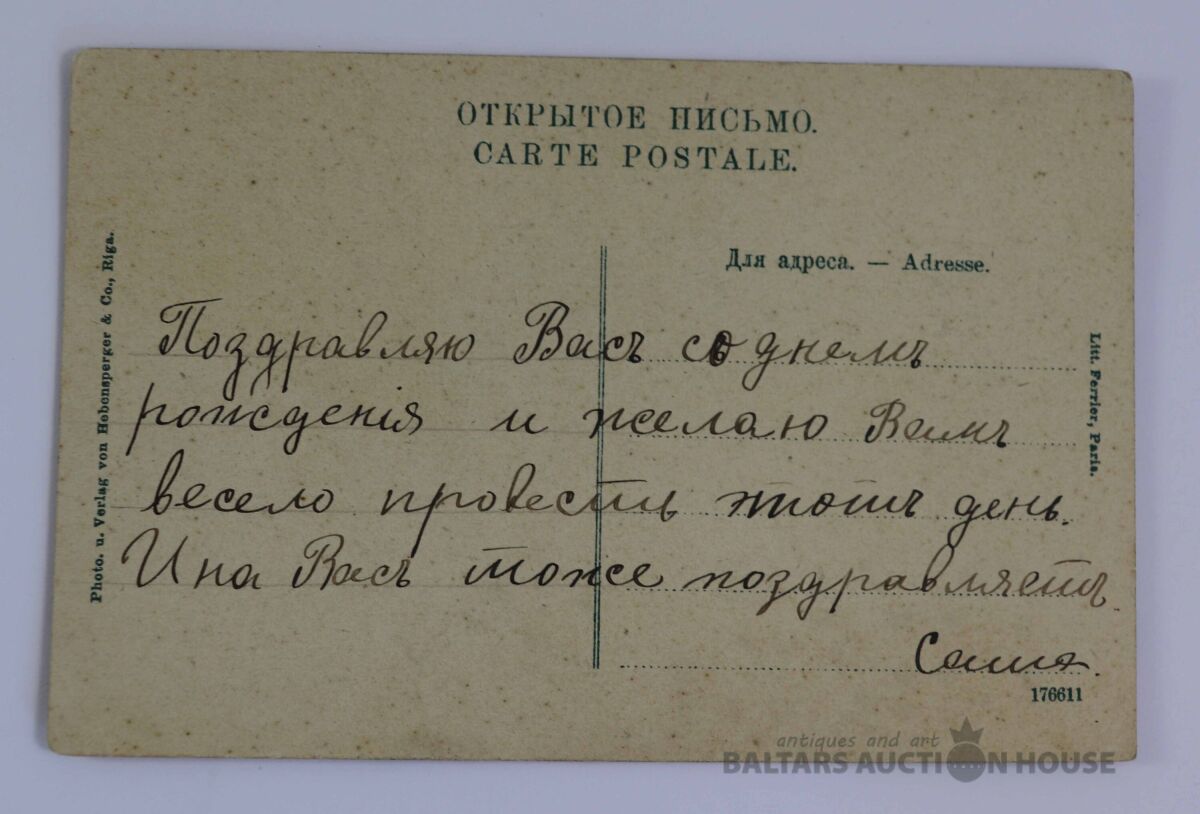 ОТКРЫТОЕ ПИСЬМО.
CARTE POSTALE.
Для адреса. — Adresse.
Photo. u. Verlag von Hebensperger & Co., Riga.
Поздравляю Васъ со днемъ
рожденія и желаю Вамъ
весело провесть этотъ день.
Ина Васъ тоже поздравляетъ.
Саша.
Litt. Ferrier, Paris.
176611
antiques and art
BALTARS AUCTION HOUSE